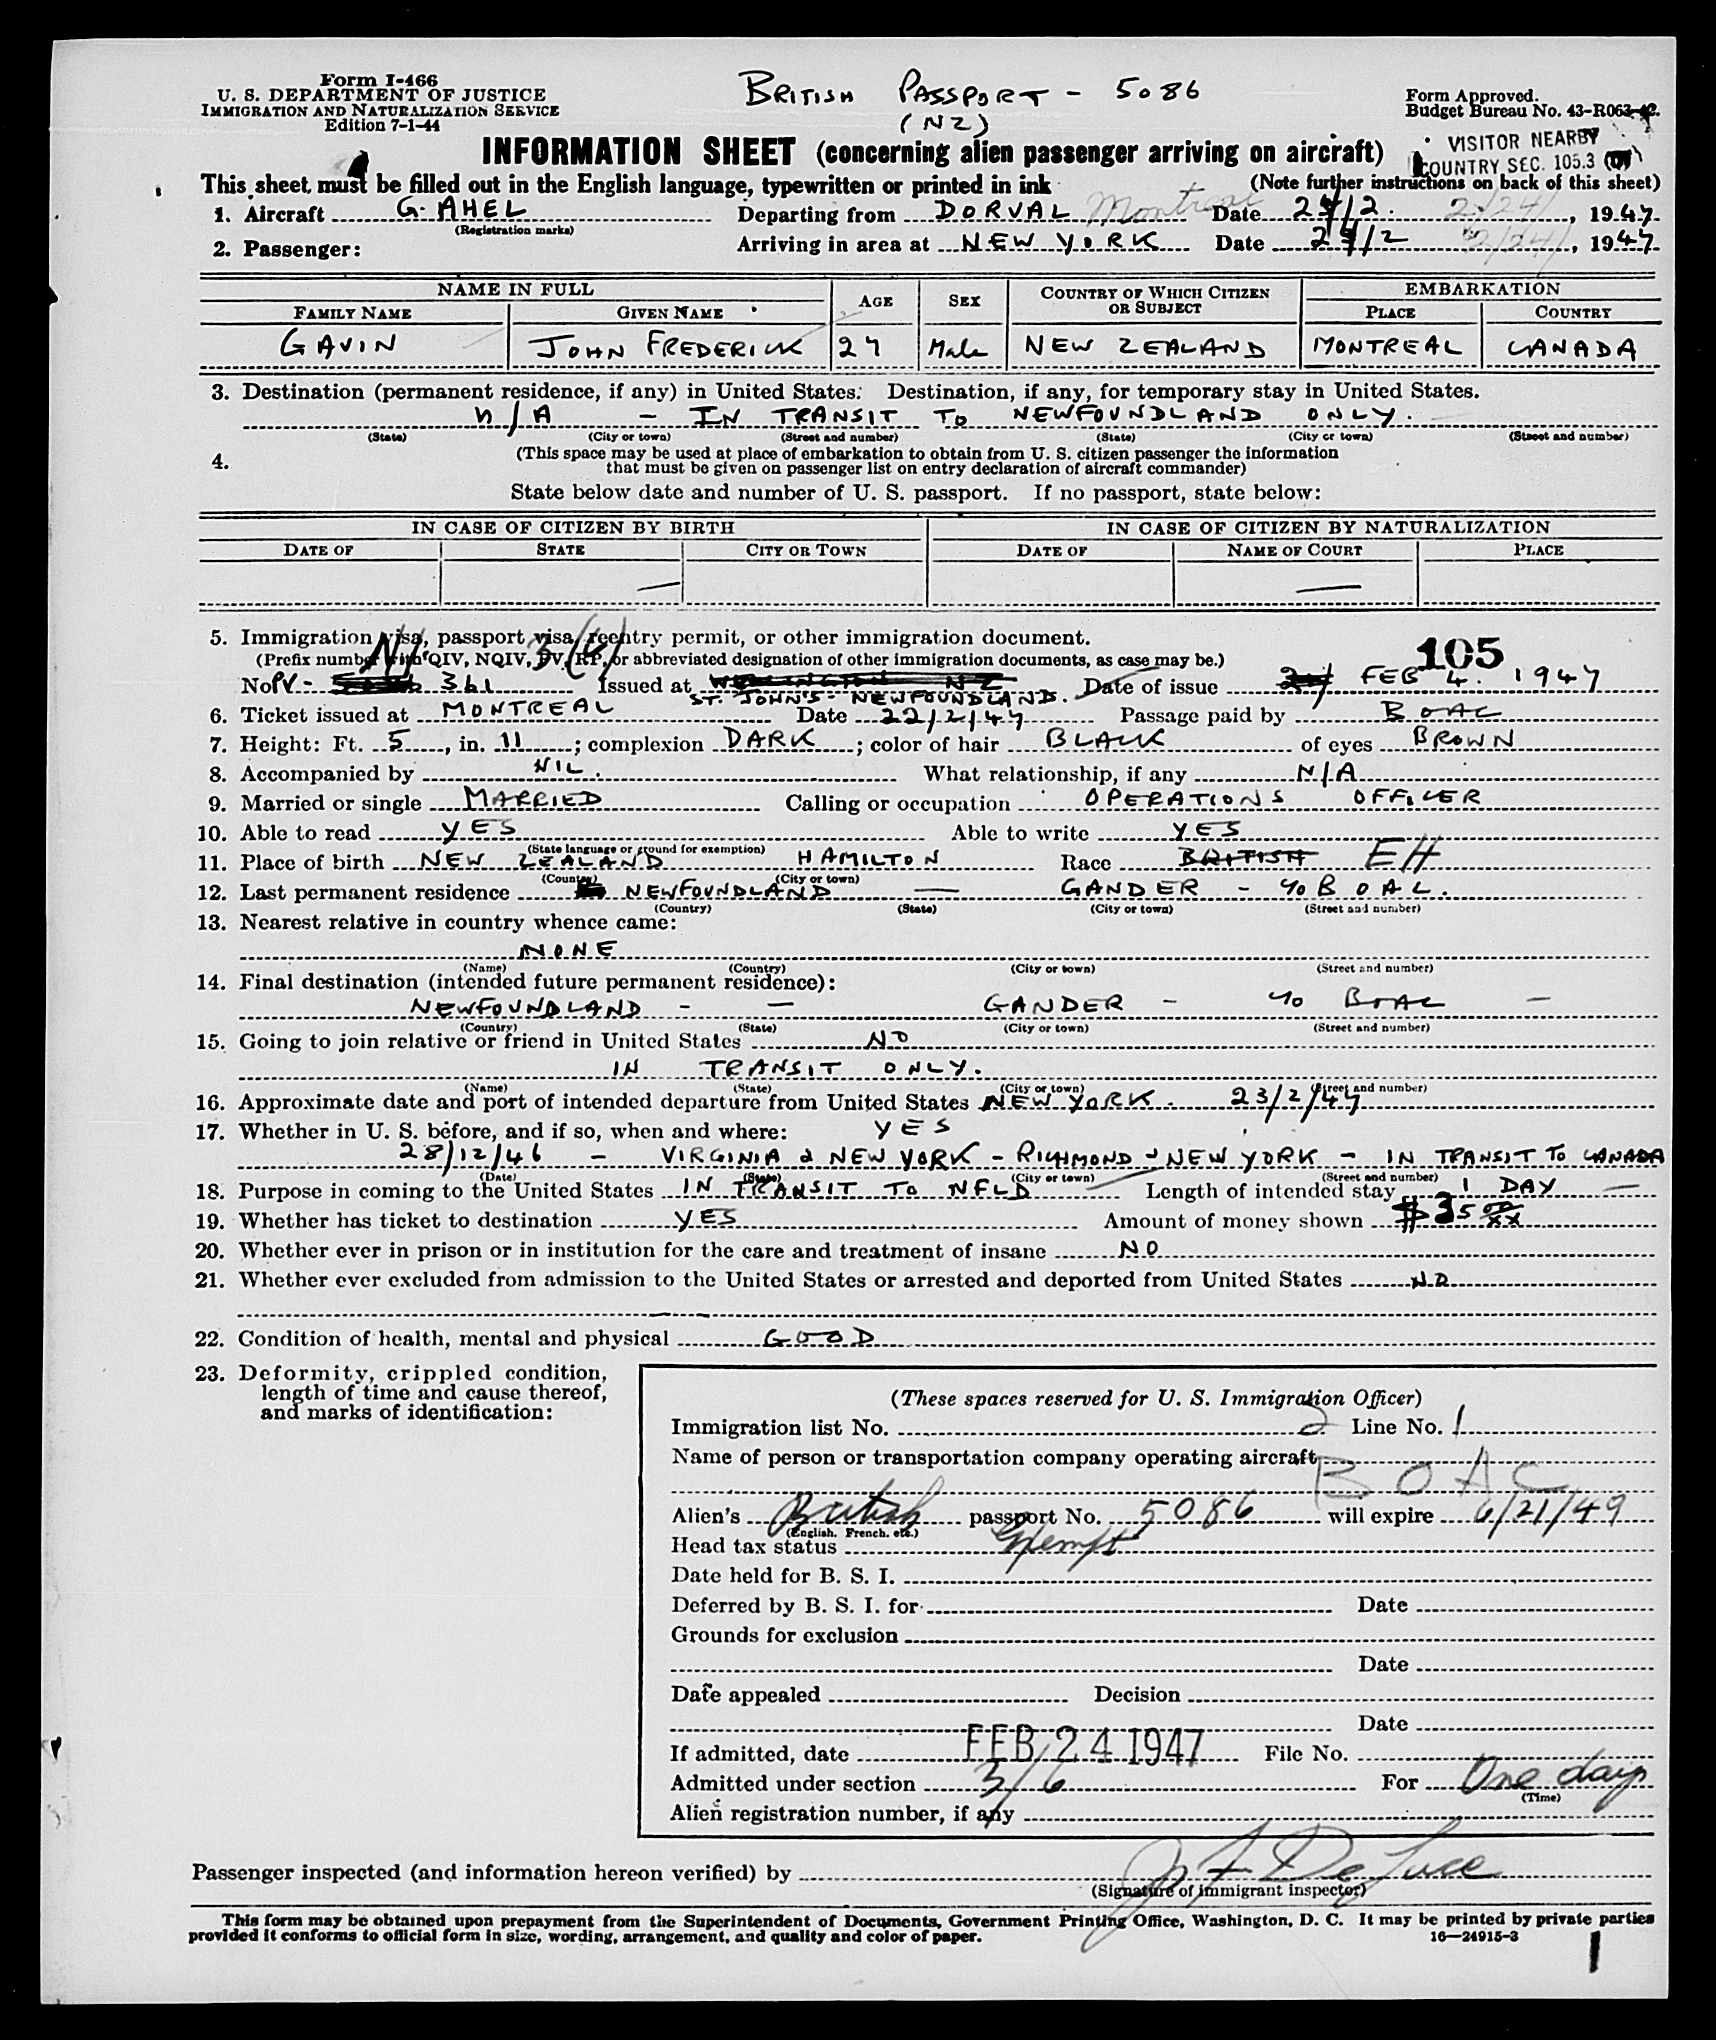 Form I-466
U. S. DEPARTMENT OF JUSTICE
IMMIGRATION AND NATURALIZATION SERVICE
Edition 7-1-44
BRITISH PASSPORT - 5086
(NZ)
Form Approved.
Budget Bureau No. 43-R063-42.
VISITOR NEARBY
COUNTRY SEC. 105.3
INFORMATION SHEET (concerning alien passenger arriving on aircraft)
This sheet must be filled out in the English language, typewritten or printed in ink
(Note further instructions on back of this sheet)
1. Aircraft G-AHEL Departing from DORVAL Montreal Date 24/2 2/24/, 1947
(Registration marks)
2. Passenger: Arriving in area at NEW YORK Date 24/2 2/24/, 1947
NAME IN FULL AGE SEX COUNTRY OF WHICH CITIZEN OR SUBJECT EMBARKATION
FAMILY NAME GIVEN NAME PLACE COUNTRY
GAVIN JOHN FREDERICK 27 Male NEW ZEALAND MONTREAL CANADA
3. Destination (permanent residence, if any) in United States: Destination, if any, for temporary stay in United States.
N/A - IN TRANSIT TO NEWFOUNDLAND ONLY.
(State) (City or town) (Street and number) (State) (City or town) (Street and number)
4. (This space may be used at place of embarkation to obtain from U. S. citizen passenger the information
that must be given on passenger list on entry declaration of aircraft commander)
State below date and number of U. S. passport. If no passport, state below:
IN CASE OF CITIZEN BY BIRTH IN CASE OF CITIZEN BY NATURALIZATION
DATE OF STATE CITY OR TOWN DATE OF NAME OF COURT PLACE
— —
5. Immigration visa, passport visa, reentry permit, or other immigration document.
(Prefix number with QIV, NQIV, PV, RP, or abbreviated designation of other immigration documents, as case may be.)
3(6)
105
No. PV- 361 Issued at WELLINGTON NZ Date of issue FEB 4. 1947
ST. JOHN'S - NEWFOUNDLAND.
6. Ticket issued at MONTREAL Date 22/2/47 Passage paid by BOAC
7. Height: Ft. 5, in. 11; complexion DARK; color of hair BLACK of eyes BROWN
8. Accompanied by NIL. What relationship, if any N/A
9. Married or single MARRIED Calling or occupation OPERATIONS OFFICER
10. Able to read YES Able to write YES
(State language or ground for exemption)
11. Place of birth NEW ZEALAND HAMILTON Race BRITISH EH
(Country) (City or town)
12. Last permanent residence NEWFOUNDLAND — GANDER - c/o BOAC.
(Country) (State) (City or town) (Street and number)
13. Nearest relative in country whence came:
NONE
(Name) (Country) (City or town) (Street and number)
14. Final destination (intended future permanent residence):
NEWFOUNDLAND - — GANDER - c/o BOAC -
(Country) (State) (City or town) (Street and number)
15. Going to join relative or friend in United States NO
IN TRANSIT ONLY.
(Name) (State) (City or town) (Street and number)
16. Approximate date and port of intended departure from United States NEW YORK. 23/2/47
17. Whether in U. S. before, and if so, when and where: YES
28/12/46 - VIRGINIA & NEW YORK - RICHMOND & NEW YORK - IN TRANSIT TO CANADA
(Date) (State) (City or town) (Street and number)
18. Purpose in coming to the United States IN TRANSIT TO NFLD Length of intended stay 1 DAY
19. Whether has ticket to destination YES Amount of money shown $35 00/XX
20. Whether ever in prison or in institution for the care and treatment of insane NO
21. Whether ever excluded from admission to the United States or arrested and deported from United States NO
22. Condition of health, mental and physical GOOD
23. Deformity, crippled condition,
length of time and cause thereof,
and marks of identification:
(These spaces reserved for U. S. Immigration Officer)
Immigration list No. 2 Line No. 1
Name of person or transportation company operating aircraft
BOAC
Alien's British passport No. 5086 will expire 6/21/49
(English, French, etc.)
Head tax status Exempt
Date held for B. S. I.
Deferred by B. S. I. for Date
Grounds for exclusion
Date
Date appealed Decision
Date
If admitted, date FEB 24 1947 File No.
Admitted under section 3/6 For One day
(Time)
Alien registration number, if any
Passenger inspected (and information hereon verified) by J F De Luce
(Signature of immigrant inspector)
This form may be obtained upon prepayment from the Superintendent of Documents, Government Printing Office, Washington, D. C. It may be printed by private parties
provided it conforms to official form in size, wording, arrangement, and quality and color of paper.
16—24915-3
1